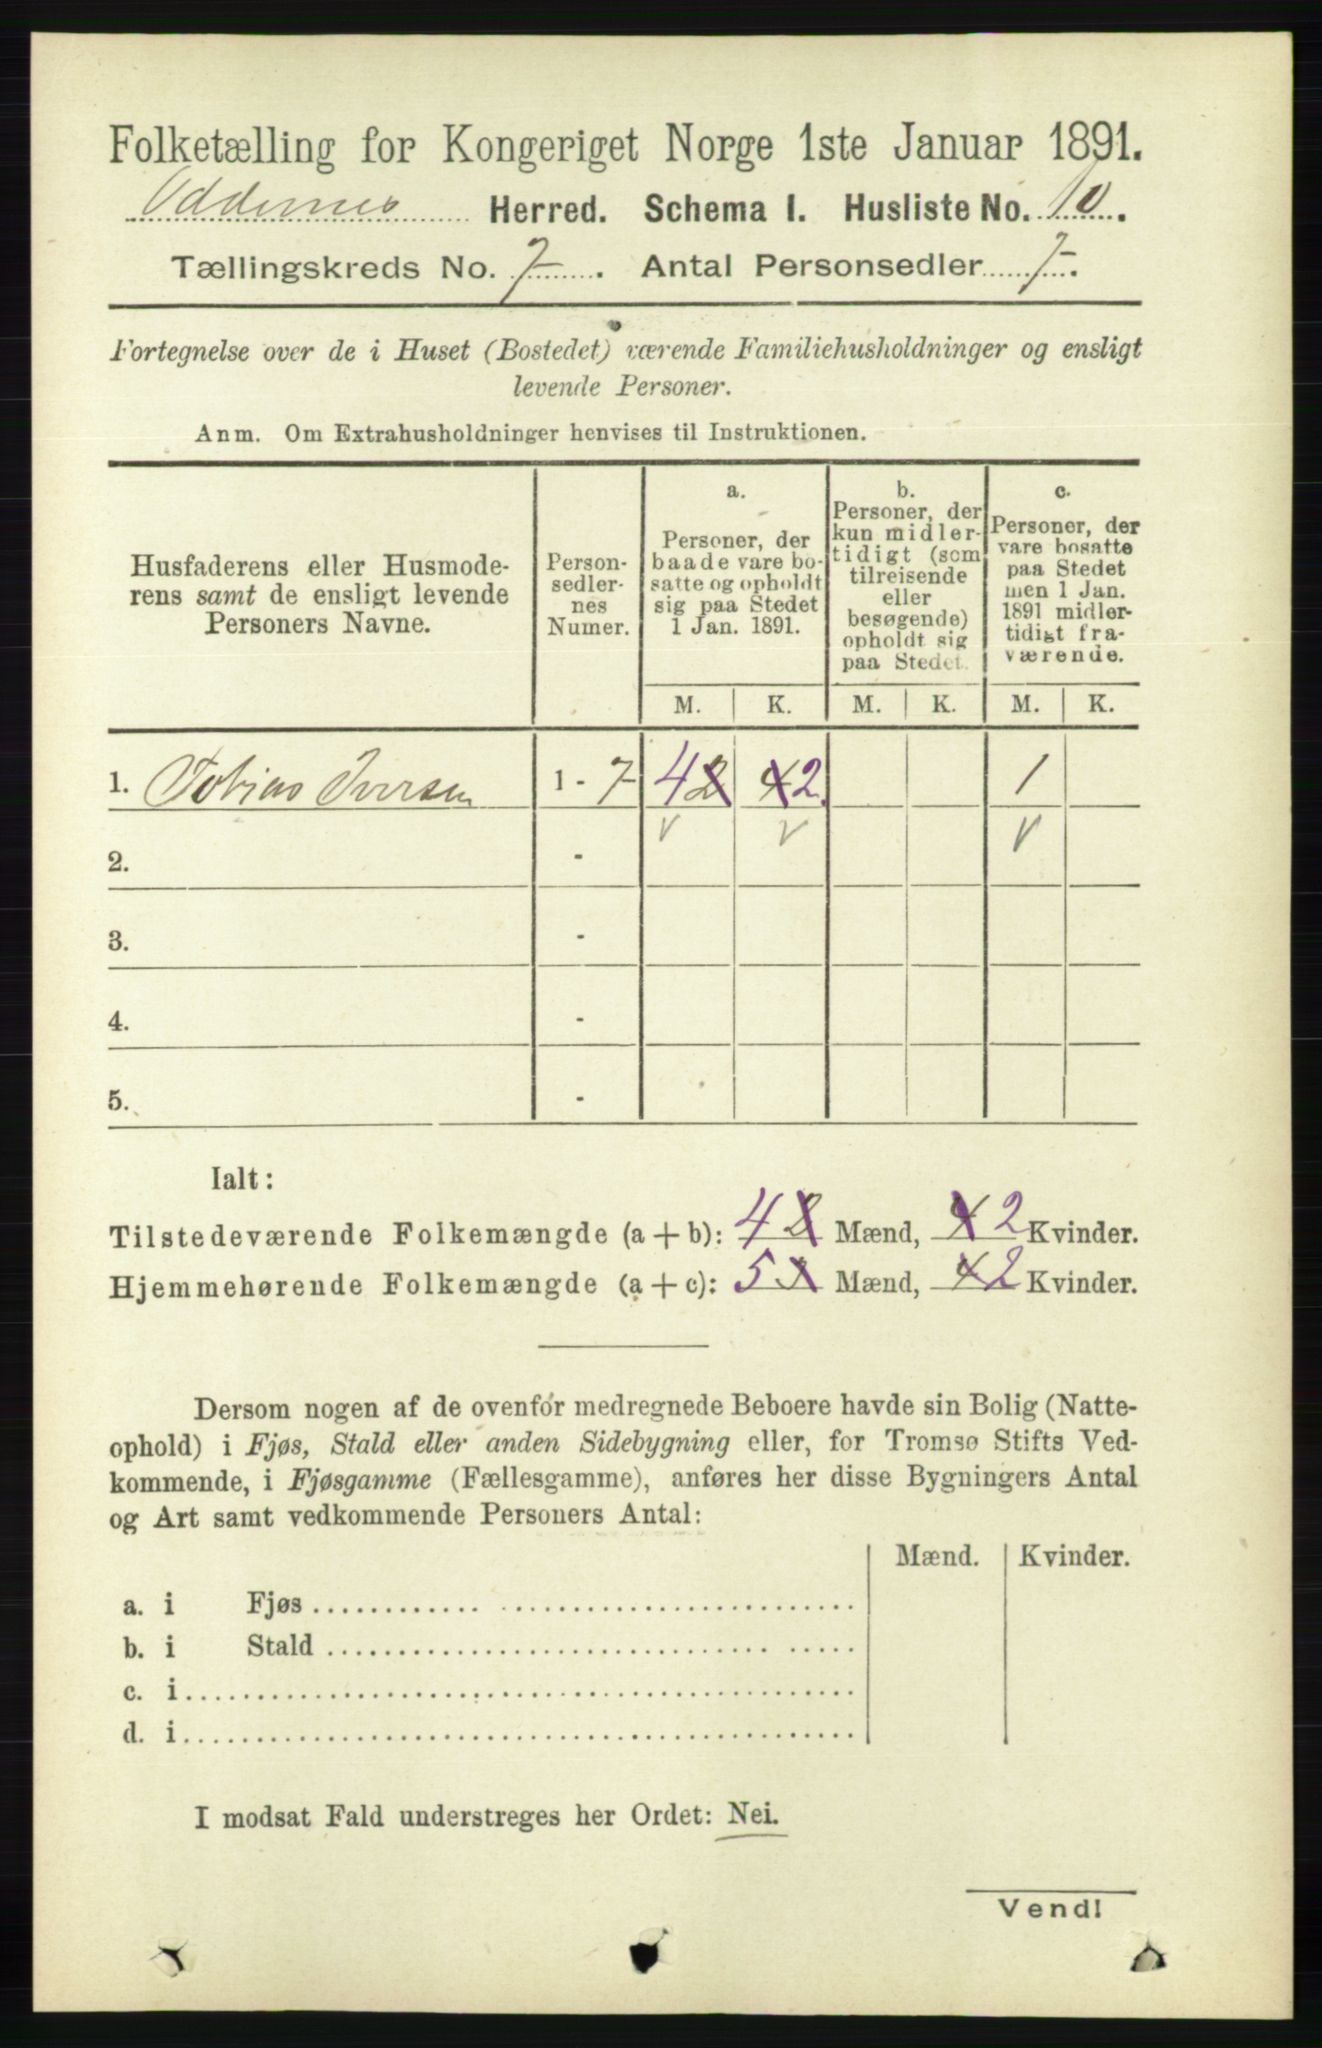 Folketælling for Kongeriget Norge 1ste Januar 1891.
Oddernes Herred. Schema I. Husliste No. 10.
Tællingskreds No. 7. Antal Personsedler 7.
Fortegnelse over de i Huset (Bostedet) værende Familiehusholdninger og ensligt
levende Personer.
Anm. Om Extrahusholdninger henvises til Instruktionen.
Husfaderens eller Husmode-
rens samt de ensligt levende
Personers Navne.
Person-
sedler-
nes
Numer.
a.
Personer, der
baade vare bo-
satte og opholdt
sig paa Stedet
1 Jan. 1891.
b.
Personer, der
kun midler-
tidigt (som
tilreisende
eller
besøgende)
opholdt sig
paa Stedet.
c.
Personer, der
vare bosatte
paa Stedet
men 1 Jan.
1891 midler-
tidigt fra-
værende.
M. K. M. K. M. K.
1. Tobias Iversen 1 - 7 4 2 4 2 1
2. -
3. -
4. -
5. -
Ialt:
Tilstedeværende Folkemængde (a + b): 4 2 Mænd, 4 2 Kvinder.
Hjemmehørende Folkemængde (a + c): 5 3 Mænd, 4 2 Kvinder.
Dersom nogen af de ovenfor medregnede Beboere havde sin Bolig (Natte-
ophold) i Fjøs, Stald eller anden Sidebygning eller, for Tromsø Stifts Ved-
kommende, i Fjøsgamme (Fællesgamme), anføres her disse Bygningers Antal
og Art samt vedkommende Personers Antal:
Mænd. Kvinder.
a. i Fjøs
b. i Stald
c. i
d. i
I modsat Fald understreges her Ordet: Nei.
Vend!